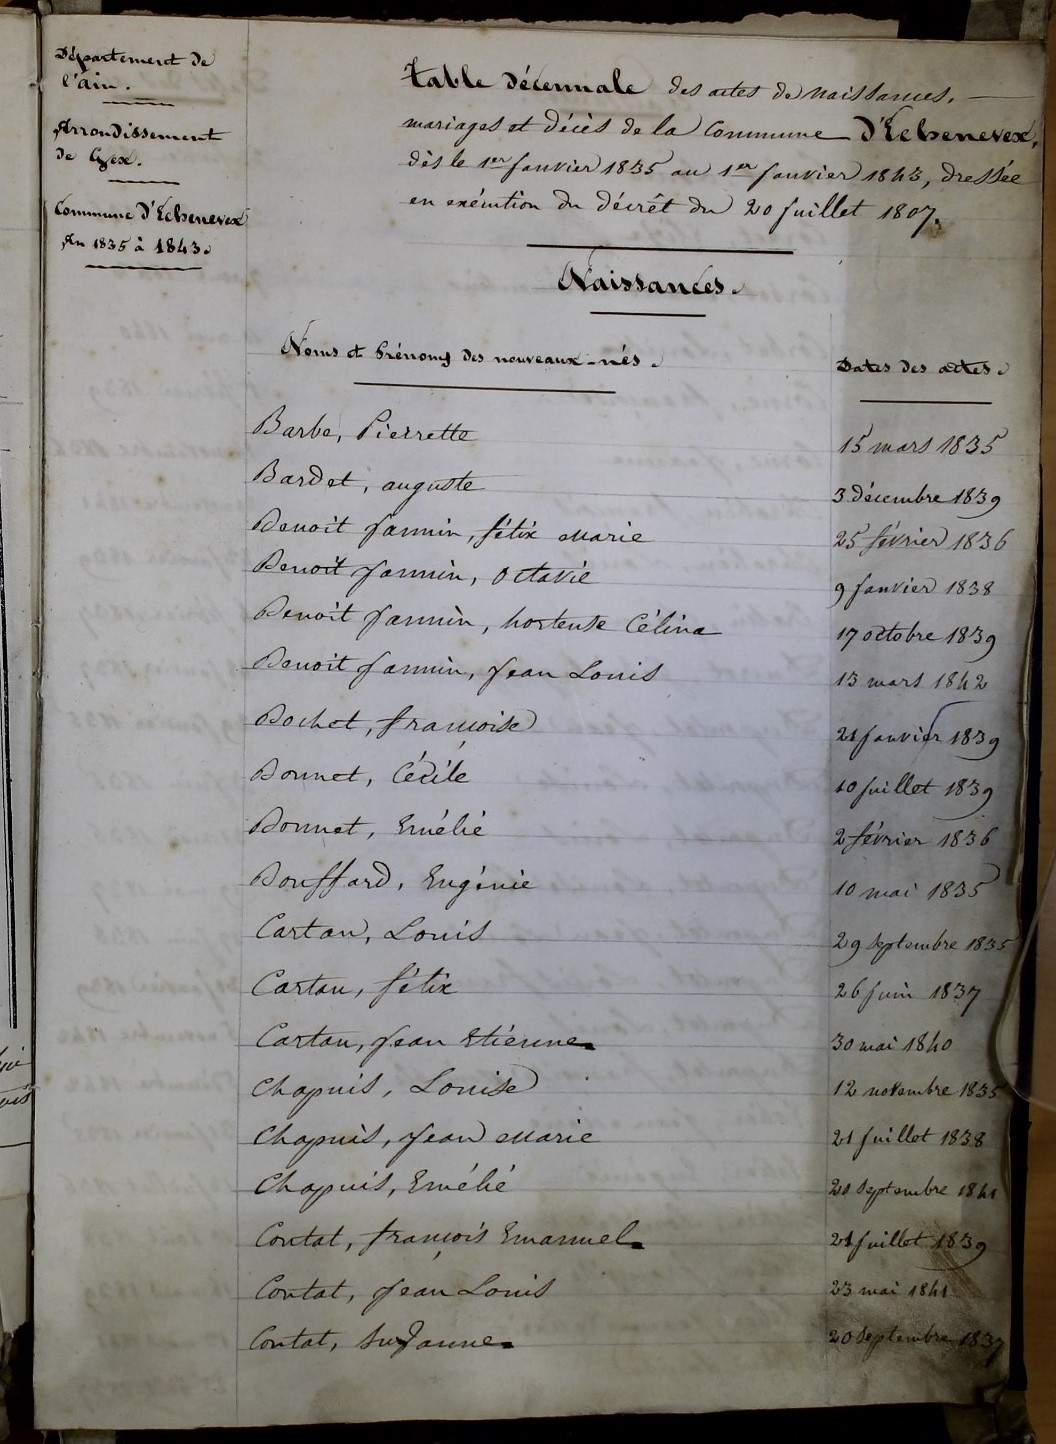 Département de
l'ain.
Arrondissement
de Gex.
Commune D'Echenevex
An 1835 à 1843.
Table Décennale des actes de Naissances,
mariages et décès de la Commune D'Echenevex,
dès le 1er Janvier 1835 au 1er Janvier 1843, dressée
en exécution du décrêt du 20 Juillet 1807.
Naissances.
Noms et Prénoms des nouveaux-nés.
Dates des actes.
Barbe, Pierrette 15 mars 1835
Bardet, auguste 3 décembre 1839
Benoit Jannin, félix Marie 25 février 1836
Benoit Jannin, Octavie 9 Janvier 1838
Benoit Jannin, hortense Célina 17 octobre 1839
Benoit Jannin, Jean Louis 13 mars 1842
Bochet, françoise 21 Janvier 1839
Bonnet, Cécile 10 Juillet 1839
Bonnet, Emélie 2 février 1836
Bouffard, Eugénie 10 mai 1835
Cartan, Louis 29 septembre 1835
Cartan, félix 26 Juin 1837
Cartan, Jean Etienne 30 mai 1840
Chapuis, Louise 12 novembre 1835
Chapuis, Jean Marie 21 Juillet 1838
Chapuis, Emélie 21 septembre 1841
Contat, françois Emanuel 21 Juillet 1839
Contat, Jean Louis 23 mai 1841
Contat, Suzanne 20 septembre 1837